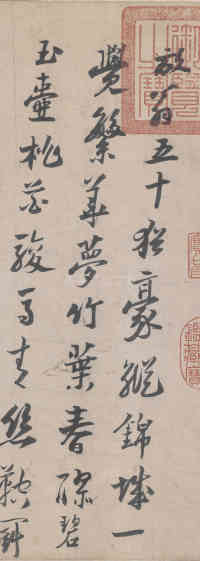 放翁五十猶豪縱錦城一
覺繁華夢竹葉春醪碧
玉壺桃花駿馬青絲鞚鬥